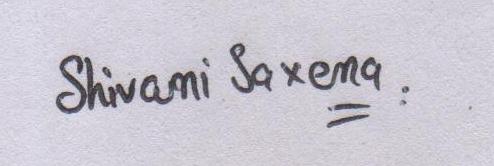 Shivani Saxena.